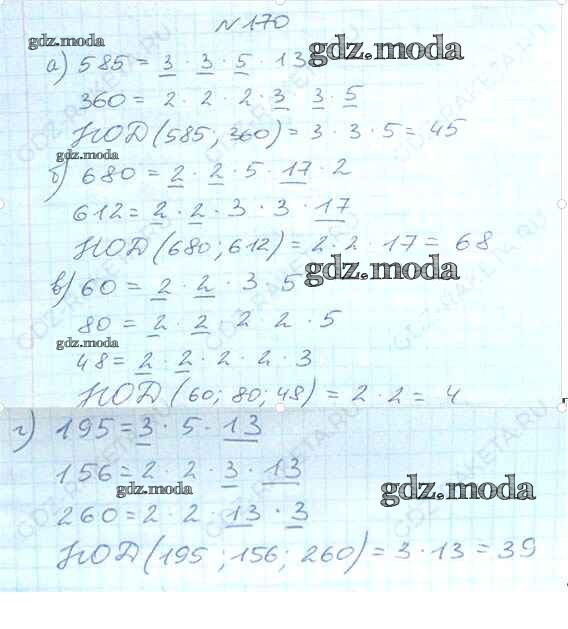 №170
gdz.moda
а) 585 = 3 · 3 · 5 · 13
gdz.moda
360 = 2 · 2 · 2 · 3 · 3 · 5
НОД (585; 360) = 3 · 3 · 5 = 45
gdz.moda
б) 680 = 2 · 2 · 5 · 17 · 2
612 = 2 · 2 · 3 · 3 · 17
НОД (680; 612) = 2 · 2 · 17 = 68
gdz.moda
в) 60 = 2 · 2 · 3 5
80 = 2 · 2 2 2 · 5
gdz.moda
48 = 2 · 2 · 2 · 2 · 3
НОД (60; 80; 48) = 2 · 2 = 4
г) 195 = 3 · 5 · 13
156 = 2 · 2 · 3 · 13
gdz.moda
gdz.moda
260 = 2 · 2 · 13 · 3
НОД (195; 156; 260) = 3 · 13 = 39
GDZ-RAKETA.RU